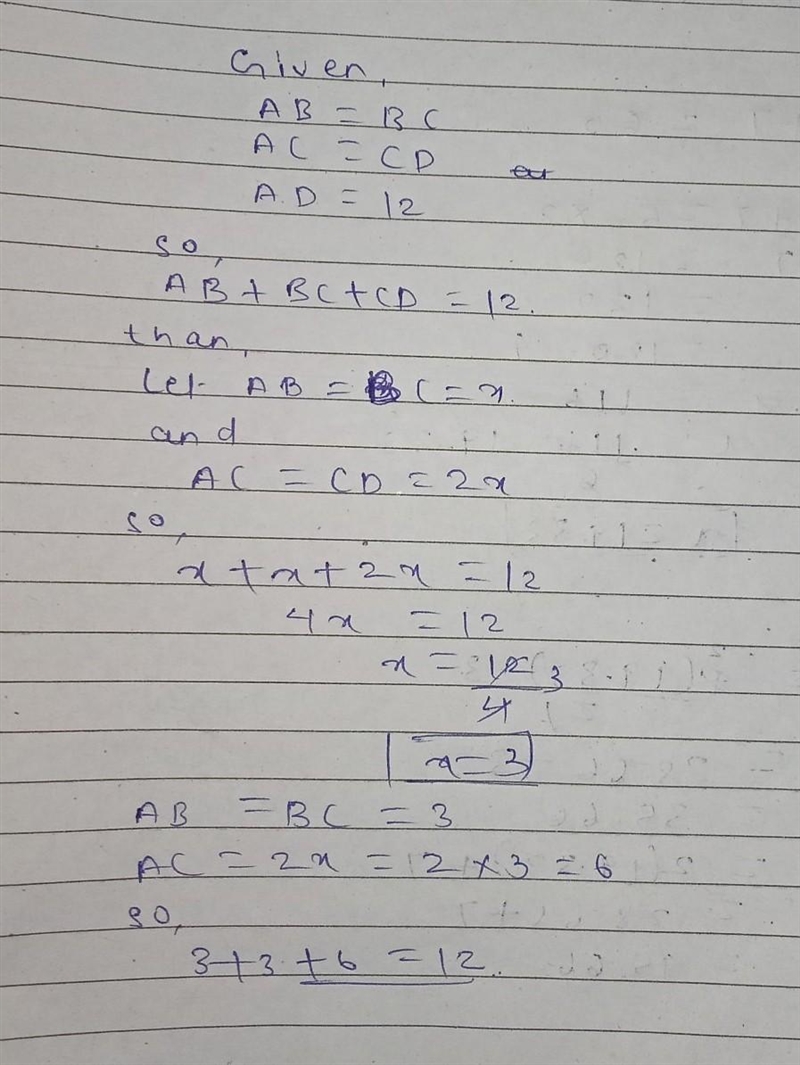 Given,
AB = BC
AC = CD
A.D = 12
so,
AB + BC + CD = 12.
than,
Let AB = BC = x.
and
AC = CD = 2x
so,
x + x + 2x = 12
4x = 12
x = 12 3
4
x = 3
AB = BC = 3
AC = 2x = 2 × 3 = 6
so,
3 + 3 + 6 = 12.